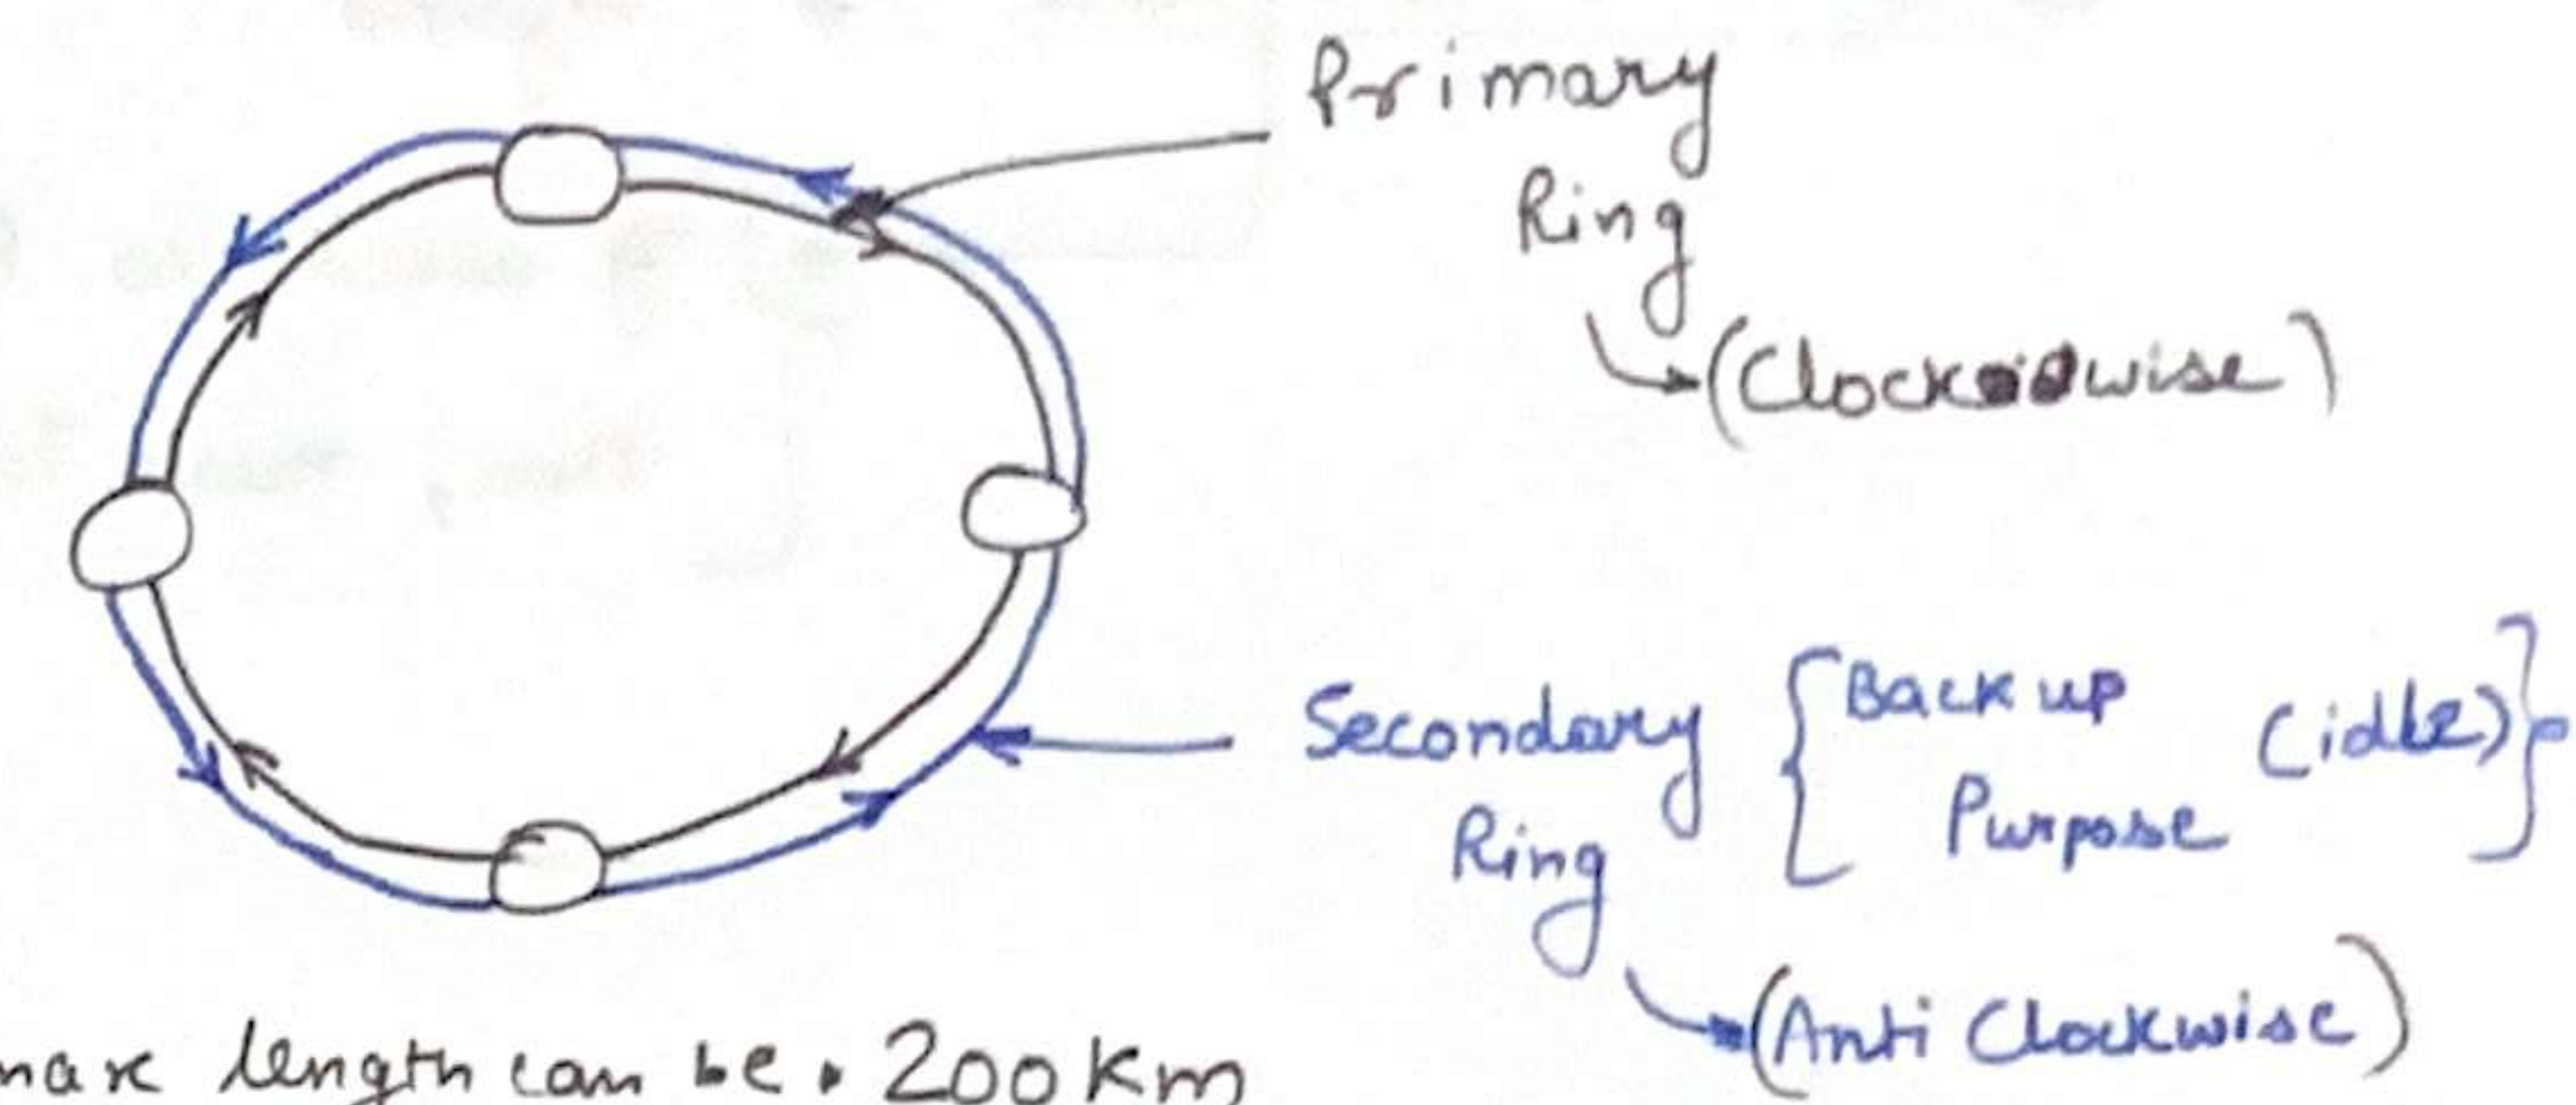 Primary
Ring
(Clockwise)
Secondary
Ring
{Back up
Purpose
(idle)}
(Anti Clockwise)
max length can be. 200 Km